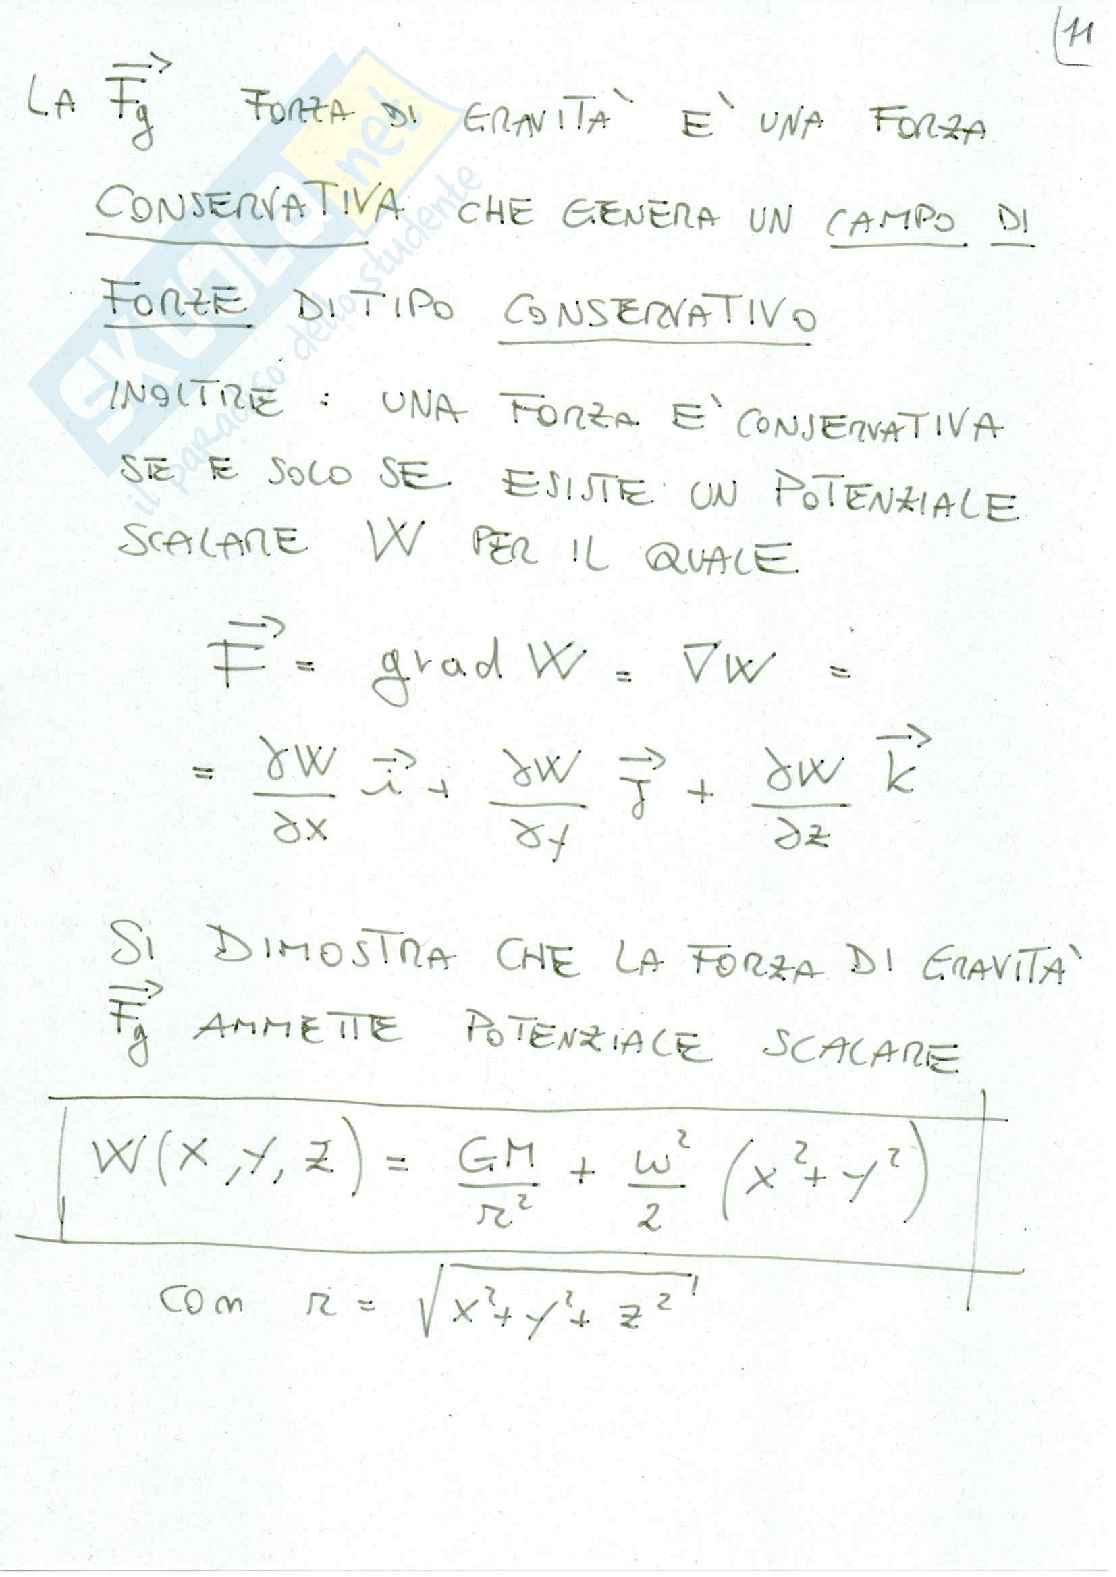 11
LA F⃗g FORZA DI GRAVITA` E` UNA FORZA
CONSERVATIVA CHE GENERA UN CAMPO DI
FORZE DI TIPO CONSERVATIVO
INOLTRE : UNA FORZA E` CONSERVATIVA
SE E SOLO SE ESISTE UN POTENZIALE
SCALARE W PER IL QUALE
F⃗ = grad W = ∇W =
= ∂W/∂x i⃗ + ∂W/∂y j⃗ + ∂W/∂z k⃗
SI DIMOSTRA CHE LA FORZA DI GRAVITA`
F⃗g AMMETTE POTENZIALE SCALARE
W(X,Y,Z) = GM/r² + ω²/2 (x²+y²)
con r = √(x²+y²+z²)
SKUOLA.net
il paradiso dello studente